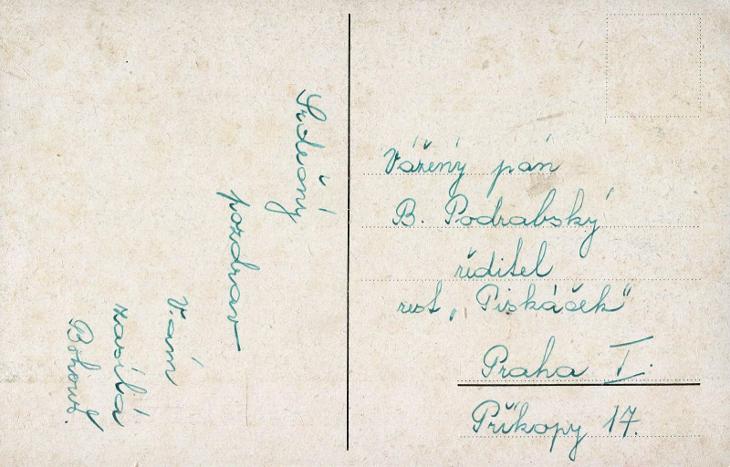 Srdečný
pozdrav
Vám
zasílá
Vážený pán
B. Podrabský
ředitel
rest. „Piskáček“
Praha I.
Příkopy 17.